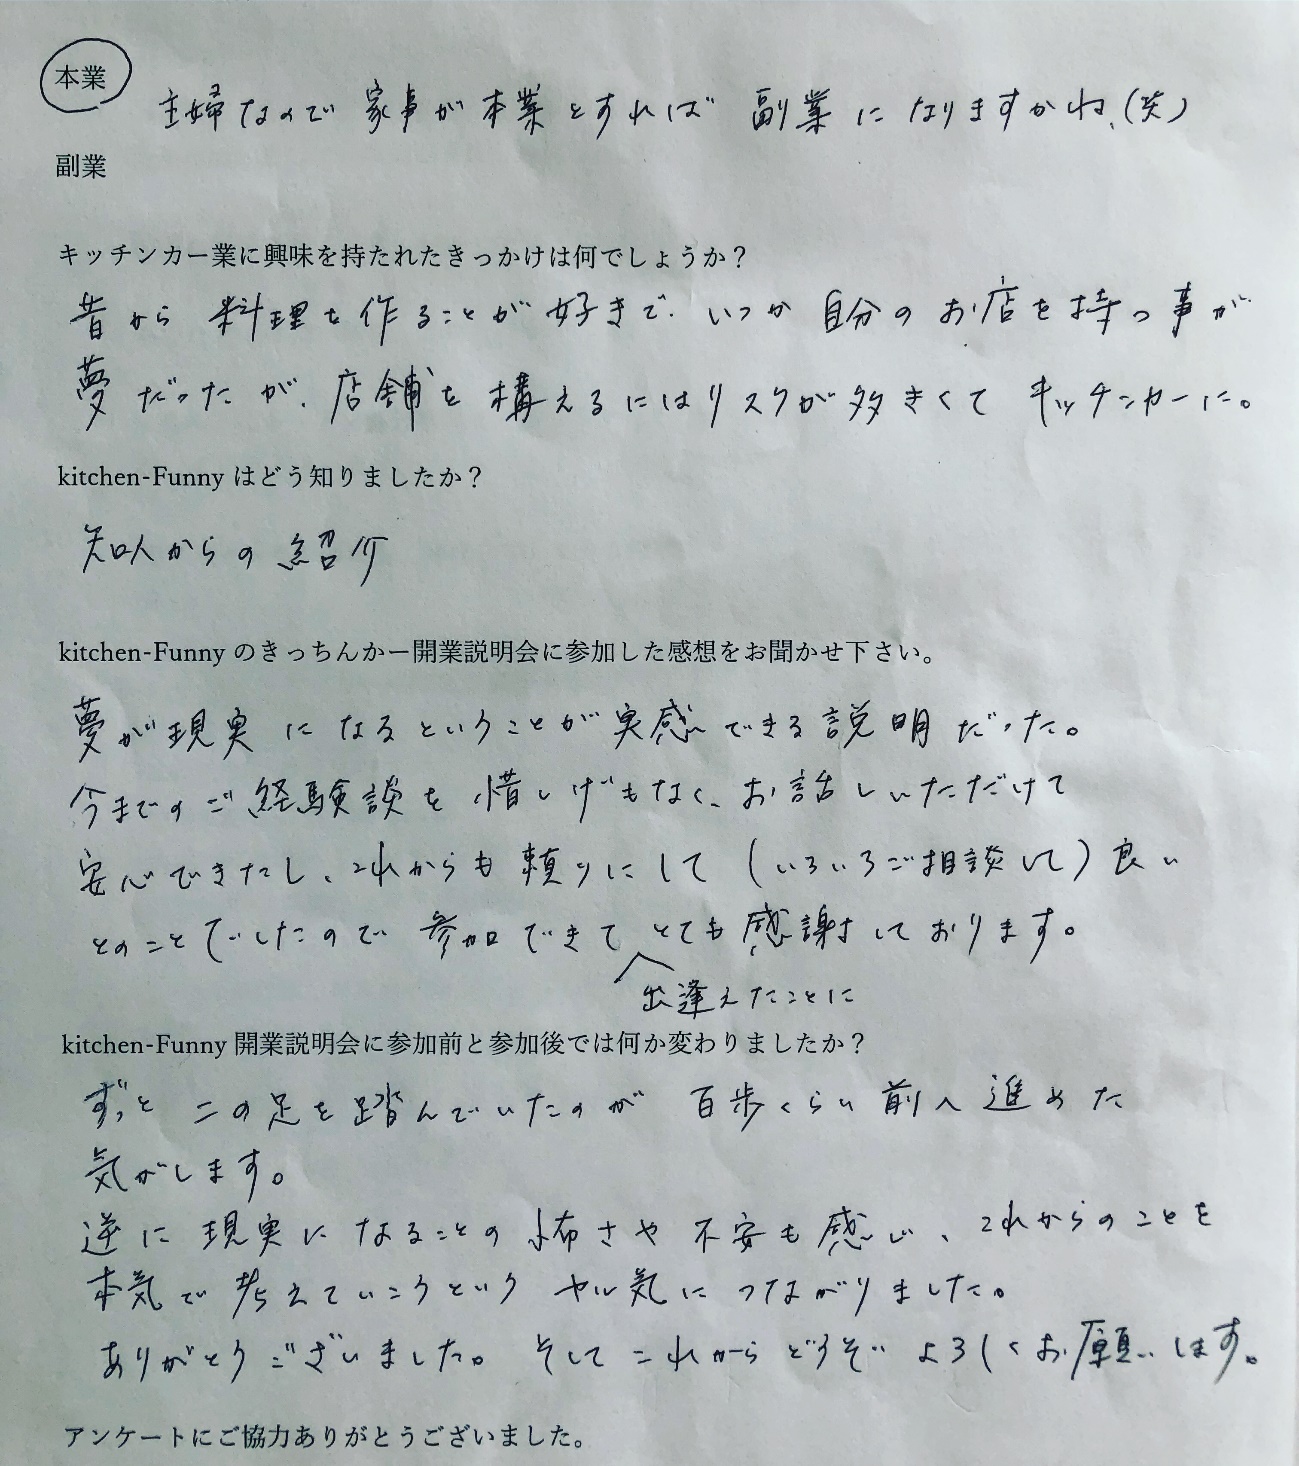 本業
主婦なので家事が本業とすれば 副業になりますかね、(笑)
副業
キッチンカー業に興味を持たれたきっかけは何でしょうか？
昔から 料理を作ることが好きで、いつか 自分のお店を持つ事が
夢だったが、店舗を構えるにはリスクが多きくて キッチンカーに。
kitchen-Funny はどう知りましたか？
知人からの紹介
kitchen-Funny のきっちんかー開業説明会に参加した感想をお聞かせ下さい。
夢が現実になるということが実感できる説明だった。
今までのご経験談を惜しげもなく、お話しいただけて
安心できたし、これからも頼りにして(いろいろご相談して)良い
とのことでしたので 参加できて とても感謝しております。
出逢えたことに
kitchen-Funny 開業説明会に参加前と参加後では何か変わりましたか？
ずっと 二の足を踏んでいたのが 百歩くらい前へ進めた
気がします。
逆に現実になることの怖さや不安も感じ、これからのことを
本気で考えていこうという ヤル気につながりました。
ありがとうございました。そしてこれからどうぞ よろしくお願いします。
アンケートにご協力ありがとうございました。